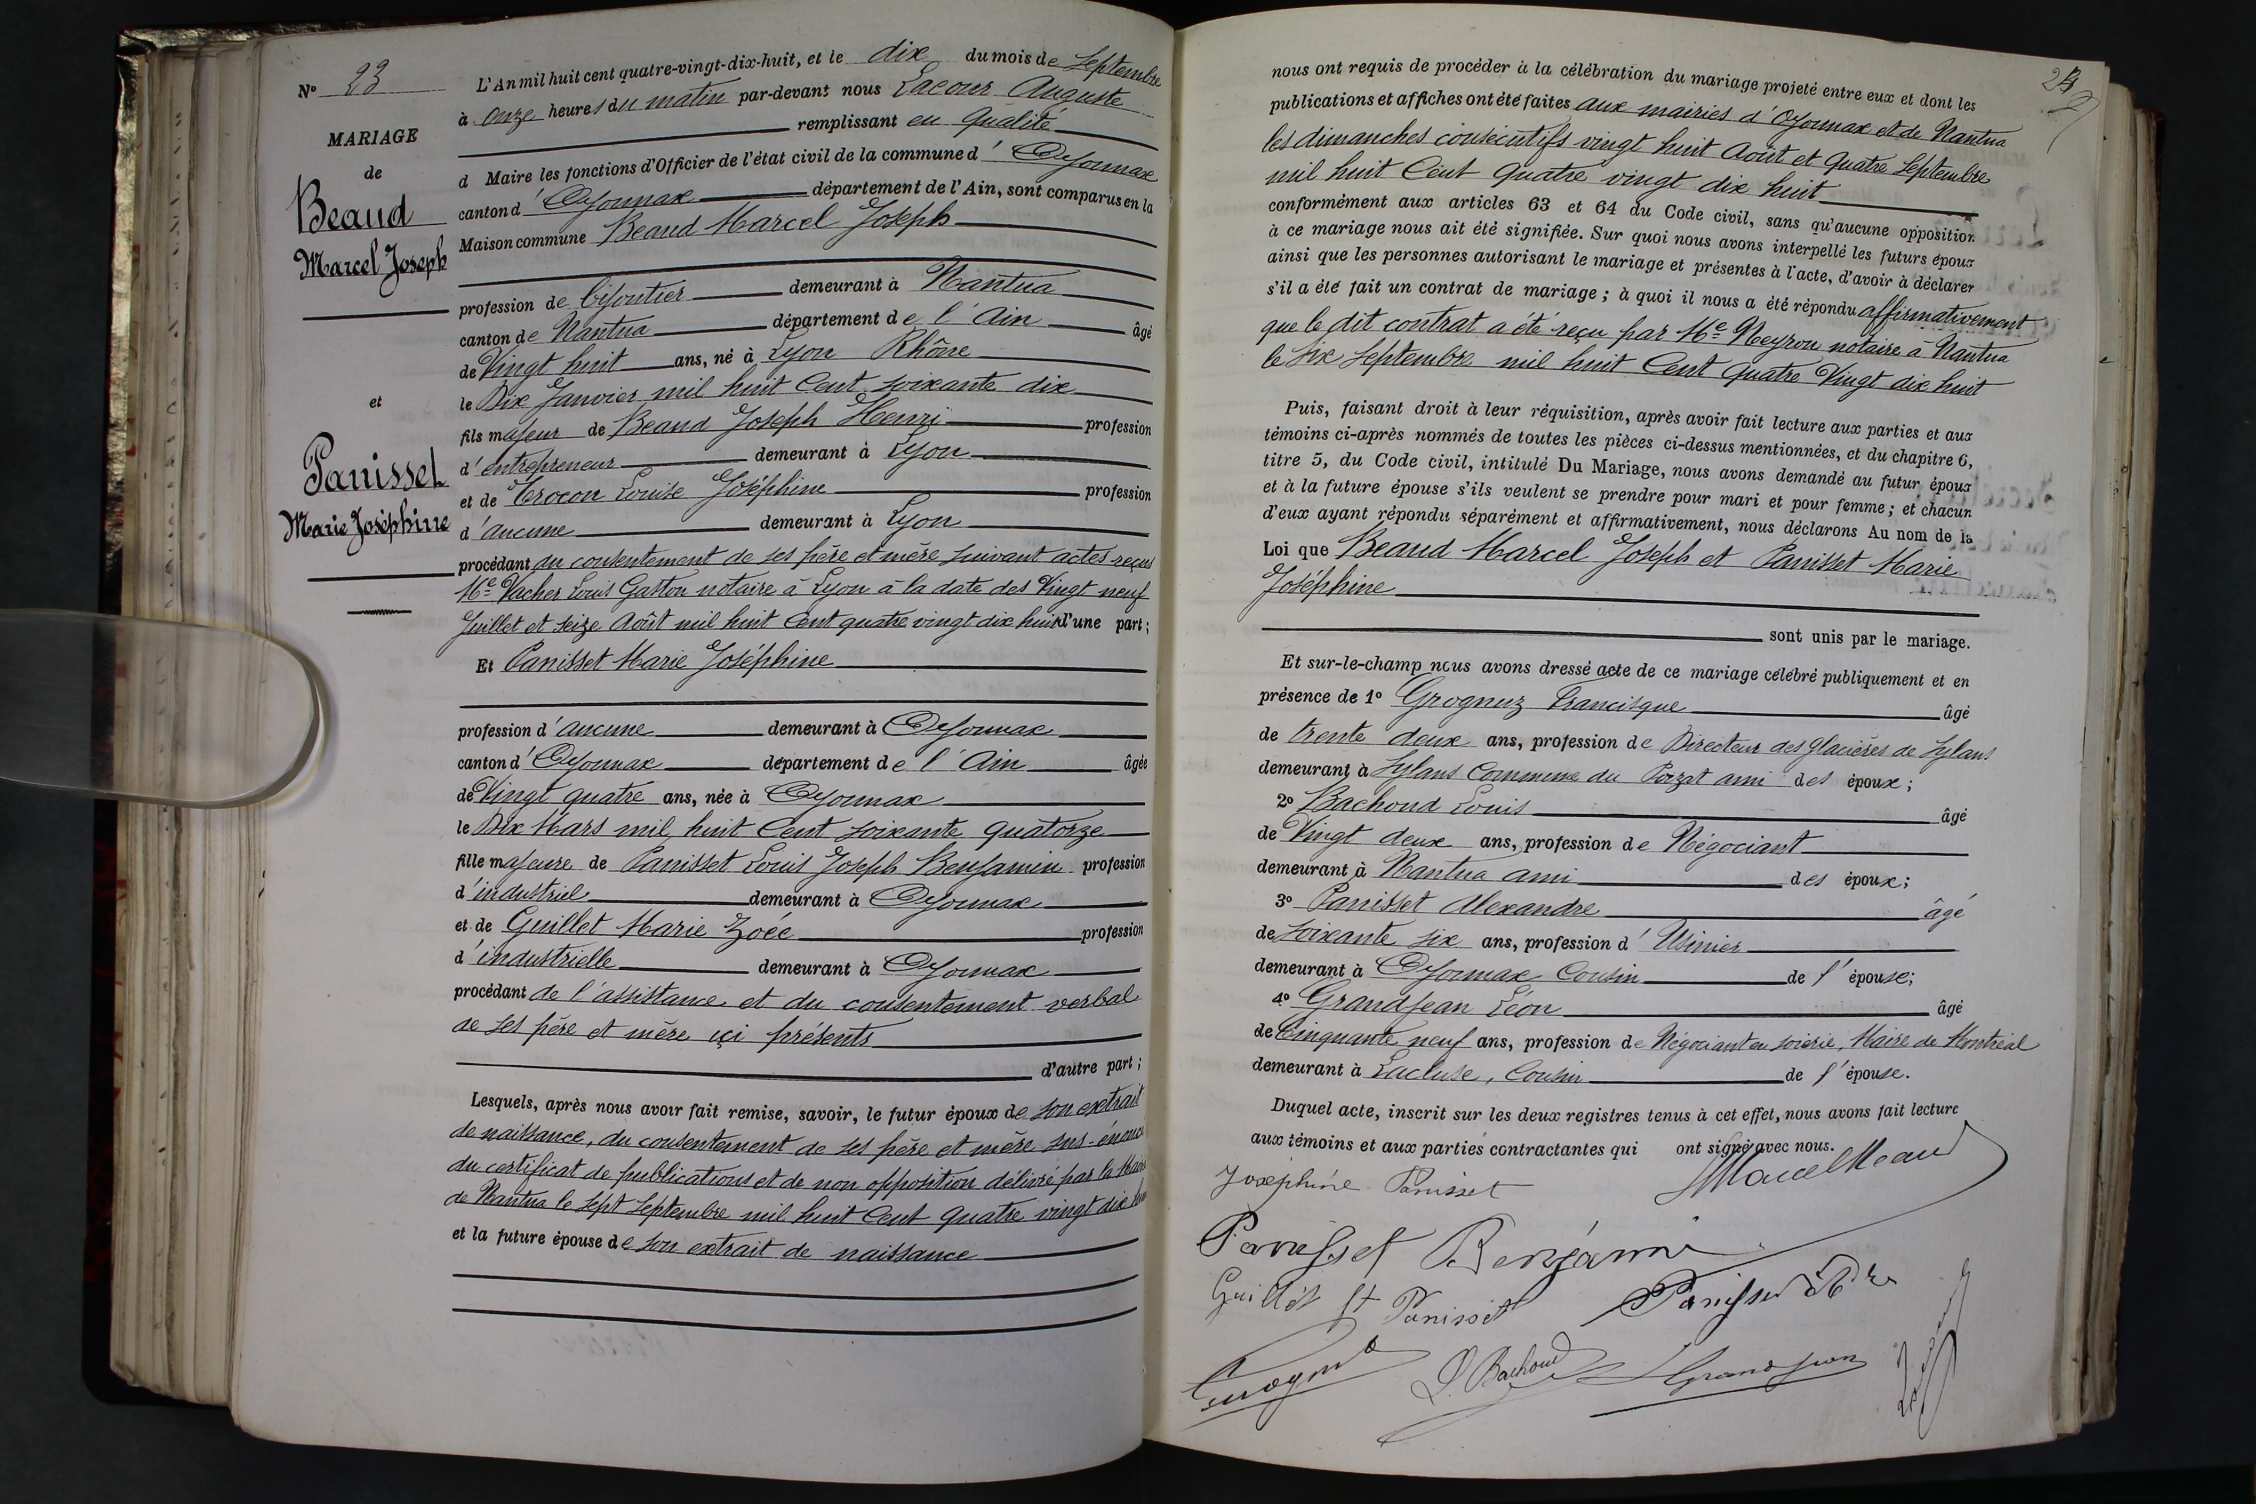 N° 23
MARIAGE
de
Beaud
Marcel Joseph
et
Panisset
Marie Joséphine
L'An mil huit cent quatre-vingt-dix-huit, et le dix du mois de Septembre
à onze heures du matin par-devant nous Lacour Auguste
remplissant en qualité
d Maire les fonctions d'Officier de l'état civil de la commune d' Oyonnax
canton d' Oyonnax département de l'Ain, sont comparus en la
Maison commune Beaud Marcel Joseph
profession de bijoutier demeurant à Nantua
canton de Nantua département de l'Ain âgé
de Vingt huit ans, né à Lyon Rhône
le Dix Janvier mil huit Cent soixante dix
fils majeur de Beaud Joseph Henri profession
d'entrepreneur demeurant à Lyon
et de Crocon Louise Joséphine profession
d'aucune demeurant à Lyon
procédant du consentement de ses père et mère suivant actes reçus
Me Vacher Louis Gaston notaire à Lyon à la date des Vingt neuf
Juillet et seize Août mil huit Cent quatre vingt dix huit d'une part ;
Et Panisset Marie Joséphine
profession d'aucune demeurant à Oyonnax
canton d' Oyonnax département de l'Ain âgée
de Vingt quatre ans, née à Oyonnax
le Dix Mars mil huit Cent soixante quatorze
fille majeure de Panisset Louis Joseph Benjamin profession
d'industriel demeurant à Oyonnax
et de Guillet Marie Zoée profession
d'industrielle demeurant à Oyonnax
procédant de l'assistance et du consentement verbal
de ses père et mère içi présents
d'autre part ;
Lesquels, après nous avoir fait remise, savoir, le futur époux de son extrait
de naissance, du consentement de ses père et mère sus-énoncé
du certificat de publications et de non opposition délivré par la Mairie
de Nantua le sept Septembre mil huit Cent quatre vingt dix huit
et la future épouse de son extrait de naissance
23
nous ont requis de procéder à la célébration du mariage projeté entre eux et dont les
publications et affiches ont été faites aux mairies d'Oyonnax et de Nantua
les dimanches consécutifs vingt huit Août et quatre Septembre
mil huit Cent quatre vingt dix huit
conformément aux articles 63 et 64 du Code civil, sans qu'aucune opposition
à ce mariage nous ait été signifiée. Sur quoi nous avons interpellé les futurs époux
ainsi que les personnes autorisant le mariage et présentes à l'acte, d'avoir à déclarer
s'il a été fait un contrat de mariage ; à quoi il nous a été répondu affirmativement
que le dit contrat a été reçu par Me Neyron notaire à Nantua
le six Septembre mil huit Cent quatre Vingt dix huit
Puis, faisant droit à leur réquisition, après avoir fait lecture aux parties et aux
témoins ci-après nommés de toutes les pièces ci-dessus mentionnées, et du chapitre 6,
titre 5, du Code civil, intitulé Du Mariage, nous avons demandé au futur époux
et à la future épouse s'ils veulent se prendre pour mari et pour femme ; et chacun
d'eux ayant répondu séparément et affirmativement, nous déclarons Au nom de la
Loi que Beaud Marcel Joseph et Panisset Marie
Joséphine
sont unis par le mariage.
Et sur-le-champ nous avons dressé acte de ce mariage célébré publiquement et en
présence de 1° Grognuz Francisque âgé
de trente deux ans, profession de Directeur des glacières de Sylans
demeurant à Sylans Commune du Poizat ami des époux ;
2° Bachoud Louis âgé
de Vingt deux ans, profession de Négociant
demeurant à Nantua ami des époux ;
3° Panisset Alexandre âgé
de soixante six ans, profession d' Usinier
demeurant à Oyonnax Cousin de l'épouse ;
4° Grandjean Léon âgé
de Cinquante neuf ans, profession de Négociant en soierie, Maire de Montréal
demeurant à Lacluse, Cousin de l'épouse.
Duquel acte, inscrit sur les deux registres tenus à cet effet, nous avons fait lecture
aux témoins et aux parties contractantes qui ont signé avec nous.
Joséphine Panisset
Marcel Beaud
Panisset Benjamin
Guillet ft Panisset
Panisset
L. Bachoud
L Grandjean